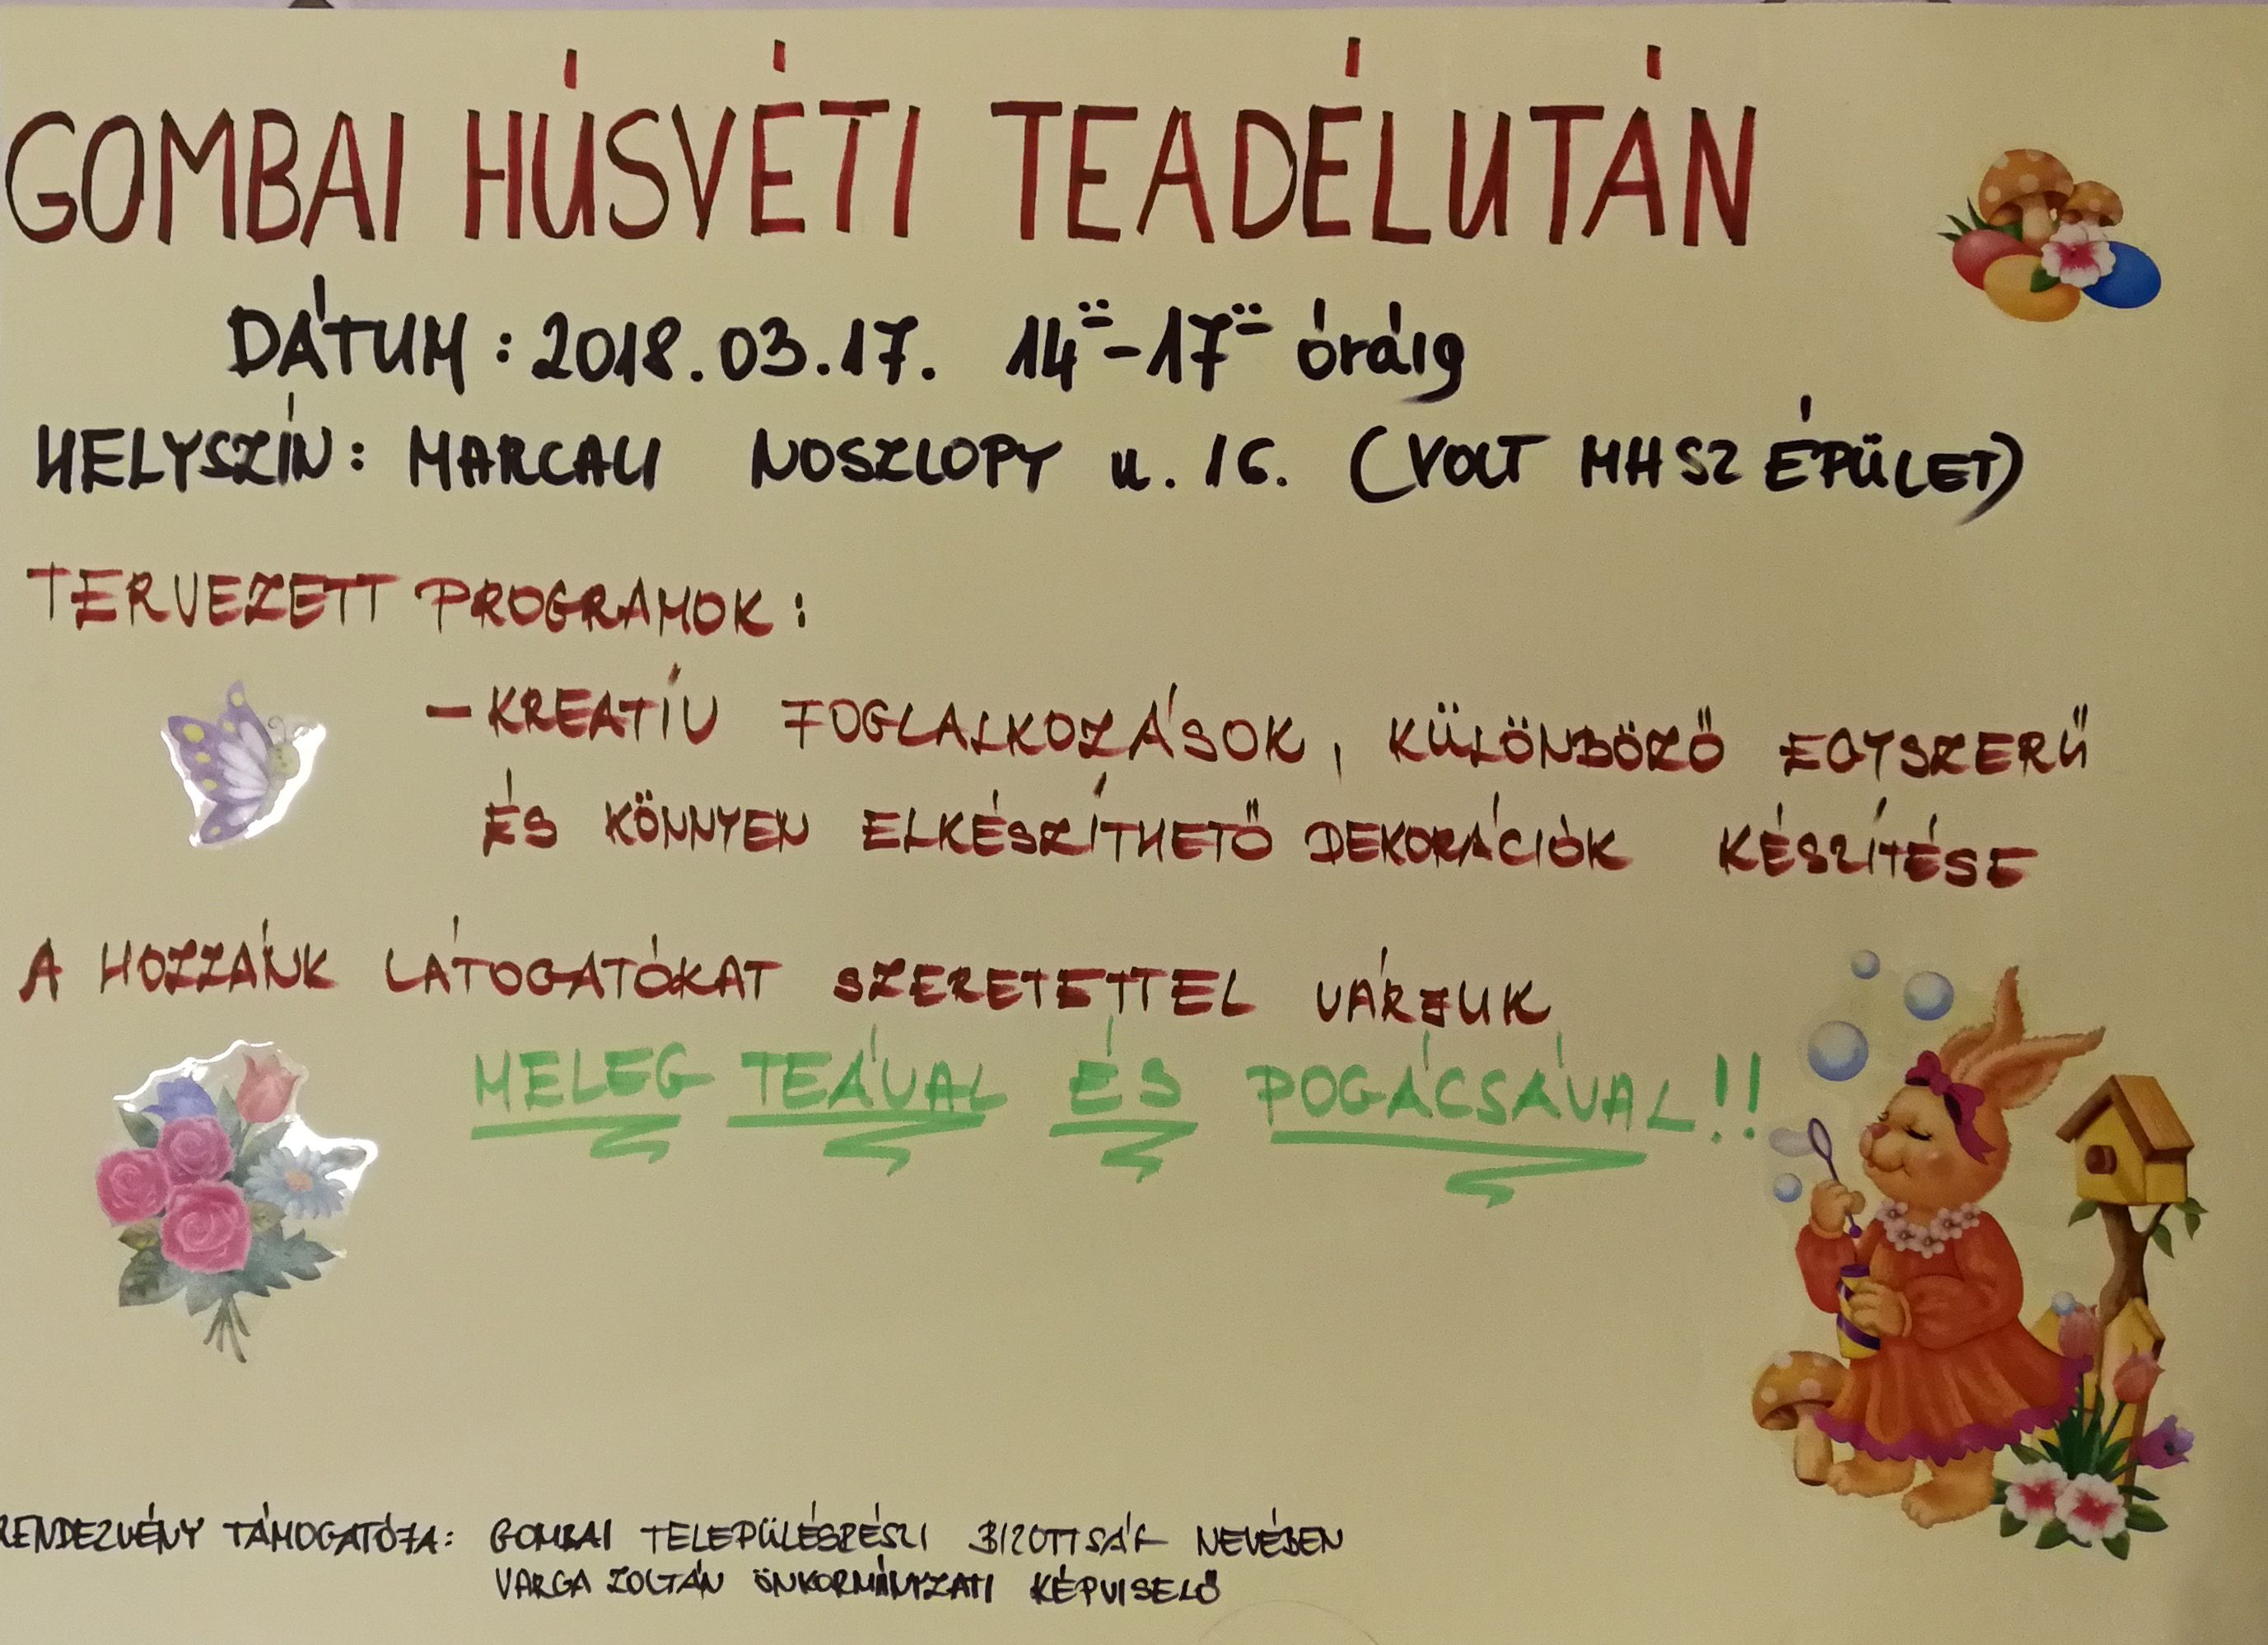 GOMBAI HÚSVÉTI TEADÉLUTÁN
DÁTUM: 2018.03.17. 14⁰⁰-17⁰⁰ óráig
HELYSZÍN: MARCALI NOSZLOPY u. 16. (VOLT MHSZ ÉPÜLET)
TERVEZETT PROGRAMOK:
- KREATÍV FOGLALKOZÁSOK, KÜLÖNBÖZŐ EGYSZERŰ
ÉS KÖNNYEN ELKÉSZÍTHETŐ DEKORÁCIÓK KÉSZÍTÉSE
A HOZZÁNK LÁTOGATÓKAT SZERETETTEL VÁRJUK
MELEG TEÁVAL ÉS POGÁCSÁVAL!!
RENDEZVÉNY TÁMOGATÓJA: GOMBAI TELEPÜLÉSRÉSZI BIZOTTSÁG NEVÉBEN
VARGA ZOLTÁN ÖNKORMÁNYZATI KÉPVISELŐ